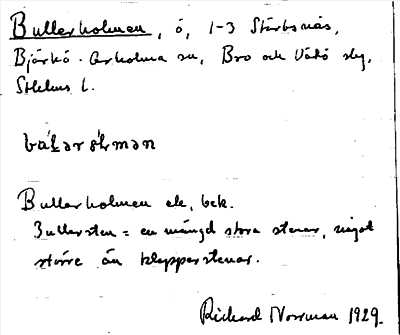 Bullerholmen, ö, 1-3 Stärbsnäs,
Björkö-Arholma sn, Bro och Vätö slg,
Sthlms l.
Bullerholmen ek, bek.
Bullersten = en mängd stora stenar, något
större än klapperstenar.
Richard Norrman 1929.